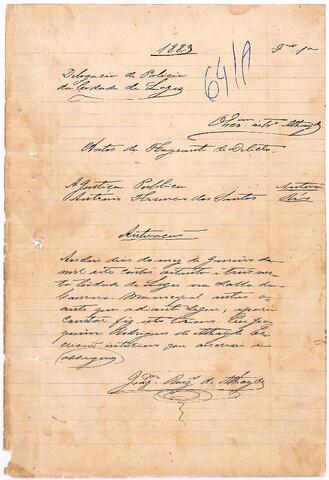 1883
64/A
Delegacia de Policia
da Cidade de Lages
Autos de Flagrante de Delicto
A Justiça Publica Autora
Antonio dos Santos Réo
Autuação
Aos dois dias do mez de Janeiro de
mil oito centos oitenta e tres nes
ta Cidade de Lages na Salla da
Camara Municipal autuo o
auto que adiante segue, e para
constar fiz este termo. Eu Joa
quim Rodrigues de Athayde Es
crivão interino que escrevi e
assigno
Joaqm. Roiz. de Athayde